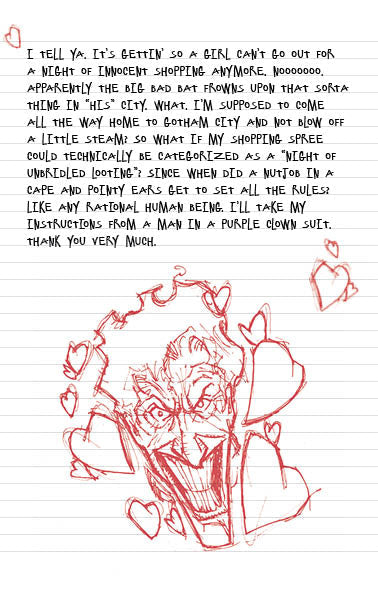 I TELL YA. IT'S GETTIN' SO A GIRL CAN'T GO OUT FOR
A NIGHT OF INNOCENT SHOPPING ANYMORE. NOOOOOOO.
APPARENTLY THE BIG BAD BAT FROWNS UPON THAT SORTA
THING IN "HIS" CITY. WHAT. I'M SUPPOSED TO COME
ALL THE WAY HOME TO GOTHAM CITY AND NOT BLOW OFF
A LITTLE STEAM? SO WHAT IF MY SHOPPING SPREE
COULD TECHNICALLY BE CATEGORIZED AS A "NIGHT OF
UNBRIDLED LOOTING"? SINCE WHEN DID A NUTJOB IN A
CAPE AND POINTY EARS GET TO SET ALL THE RULES?
LIKE ANY RATIONAL HUMAN BEING. I'LL TAKE MY
INSTRUCTIONS FROM A MAN IN A PURPLE CLOWN SUIT.
THANK YOU VERY MUCH.